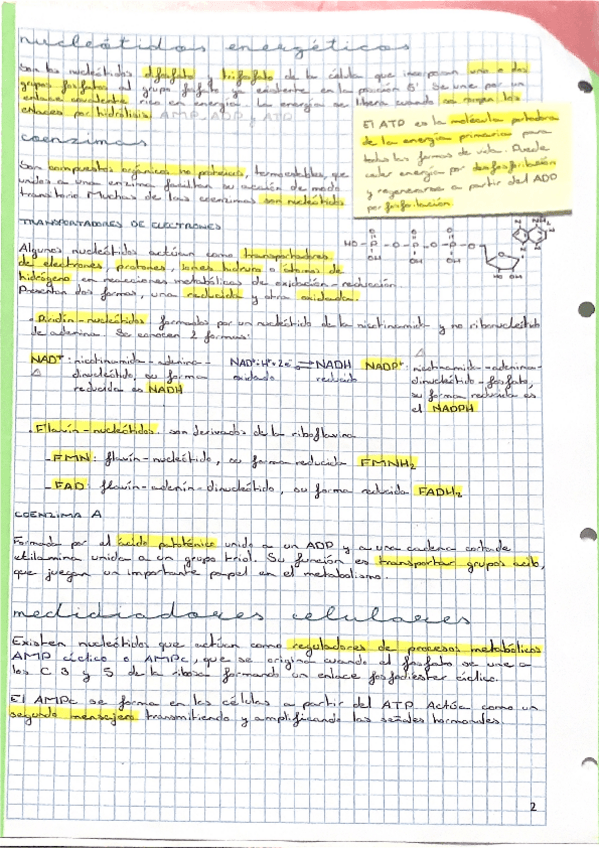 nucleótidos energéticos
Son los nucleótidos difosfato y trifosfato de la célula que incorporan uno o dos
grupos fosfatos al grupo fosfato ya existente en la posición 5'. Se une por un
enlace covalente rico en energía. La energía se libera cuando se rompen los
enlaces por hidrólisis. AMP, ADP y ATP
El ATP es la molécula portadora
de la energía primaria para
todas las formas de vida. Puede
ceder energía por desfosforilación
y regenerarse a partir del ADP
por fosforilación.
coenzimas
Son compuestos orgánicos no proteicos, termoestables, que
unidos a una enzima facilitan su acción de modo
transitorio. Muchas de las coenzimas son nucleótidos
TRANSPORTADORES DE ELECTRONES
Algunos nucleótidos actúan como transportadores
de electrones, protones, iones hidruro o átomos de
hidrógeno en reacciones metabólicas de oxidación-reducción.
Presentan dos formas, una reducida y otra oxidada.
· Piridín-nucleótidos formados por un nucleótido de la nicotinamida y no ribonucleótido
de adenina. Se conocen 2 formas:
NAD⁺: nicotinamida-adenina-
dinucleótido, su forma
reducida es NADH
NAD⁺+H⁺+2e⁻ ⇌ NADH
oxidado reducido
NADP⁺: nicotinamida-adenina-
dinucleótido-fosfato,
su forma reducida es
el NADPH
· Flavín-nucleótidos: son derivados de la riboflavina
- FMN: flavín-nucleótido, su forma reducida FMNH₂
- FAD: flavín-adenín-dinucleótido, su forma reducida FADH₂
COENZIMA A
Formada por el ácido patoténico unido a un ADP y a una cadena corta de
etilamina unida a un grupo tiol. Su función es transportar grupos acilo,
que juegan un importante papel en el metabolismo.
medidiadores celulares
Existen nucleótidos que actúan como reguladores de procesos metabólicos
AMP cíclico o AMPc, que se origina cuando el fosfato se une a
los C 3 y 5 de la ribosa formando un enlace fosfodiester cíclico.
El AMPc se forma en las células a partir del ATP. Actúa como un
segundo mensajero transmitiendo y amplificando las señales hormonales.
2